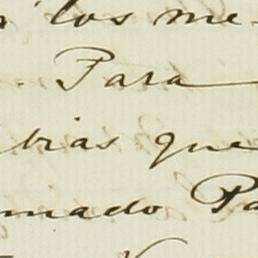 los me-
Para
bias que
mado Pa